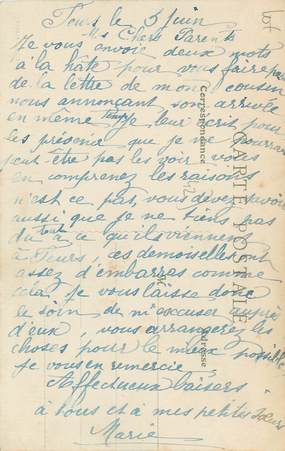 Tours le 5 Juin
Mes Chers Parents
Je vous envoie deux mots
à la hâte pour vous faire part
de la lettre de mon cousin
nous annonçant son arrivée
en même temps je leur écrit pour
les prévenir que je ne pourrai
peut-être pas les voir vous
en comprenez les raisons
n'est ce pas, vous devez savoir
aussi que je ne tiens pas
du tout à ce qu'ils viennent
à Tours, ces demoiselles ont
assez d'embarras comme
cela je vous laisse donc
le soin de m'excuser auprès
d'eux, vous arrangerez les
choses pour le mieux possible
je vous en remercie
Affectueux baisers
à tous et à mes petites sœurs
Marie
CARTE POSTALE
Correspondance
Adresse
lot